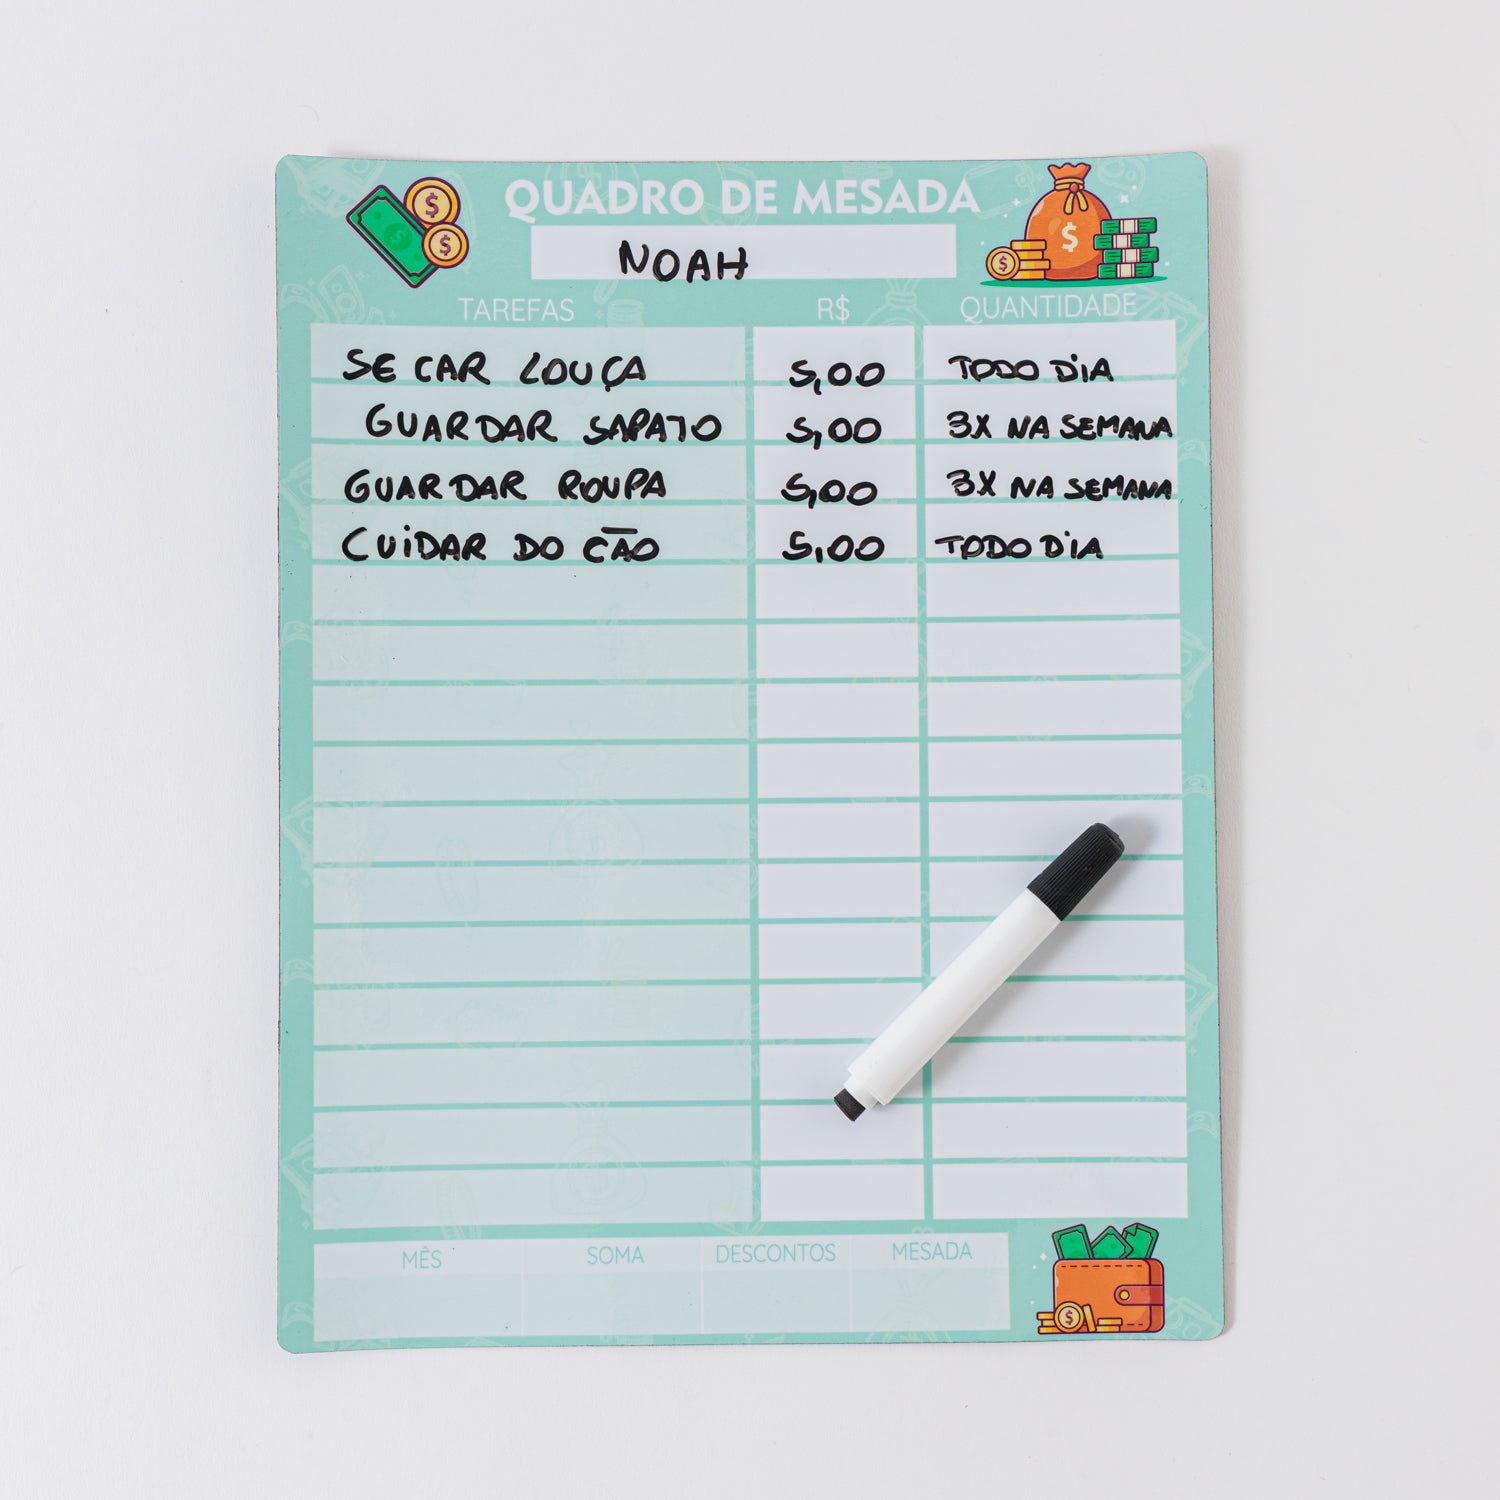 QUADRO DE MESADA
NOAH
TAREFAS R$ QUANTIDADE
SECAR LOUÇA 5,00 TODO DIA
GUARDAR SAPATO 5,00 3X NA SEMANA
GUARDAR ROUPA 5,00 3X NA SEMANA
CUIDAR DO CÃO 5,00 TODO DIA
MÊS SOMA DESCONTOS MESADA